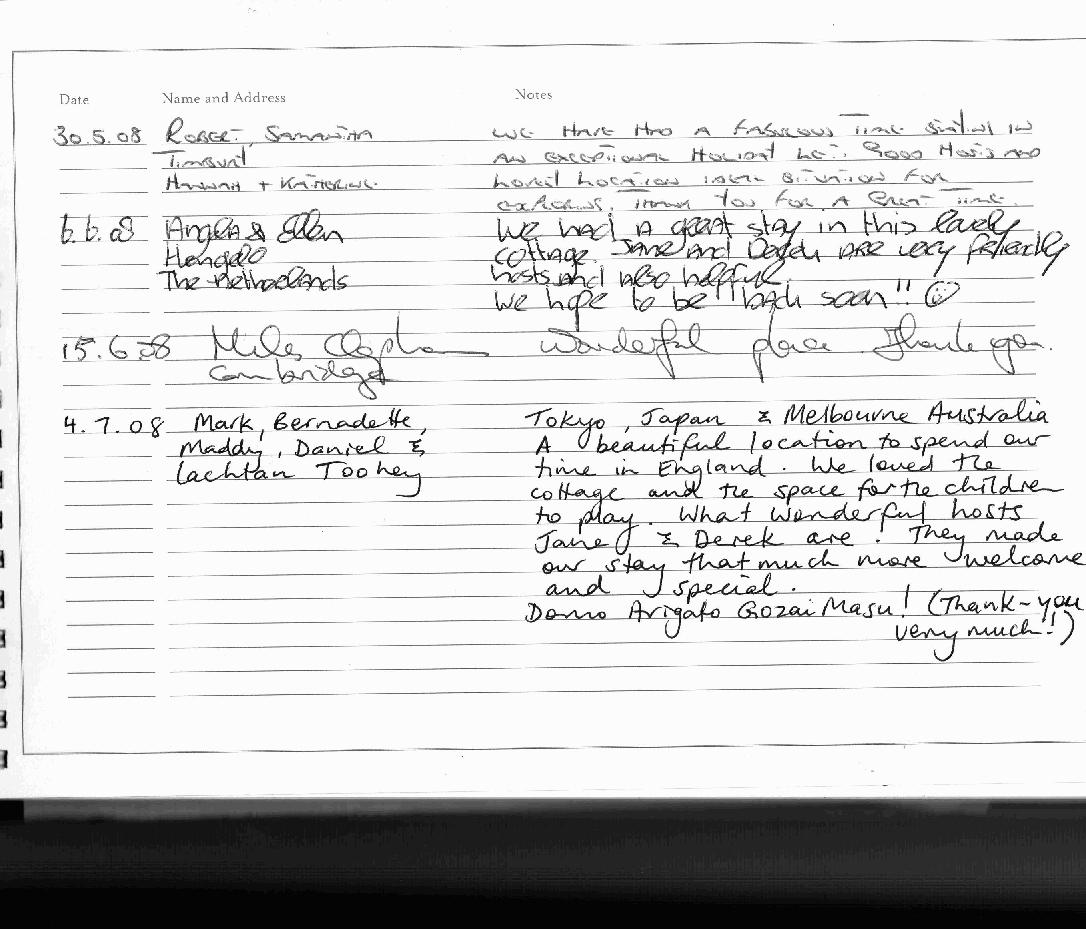 Date Name and Address Notes
30.5.08 ROBERT, SAMANTHA WE HAVE HAD A FABULOUS TIME STAYING IN
AN EXCEPTIONAL HOLIDAY LET. GOOD HOSTS AND
HANNAH + KATHERINE. LOVELY LOCATION IDEAL SITUATION FOR
EXPLORING. THANK YOU FOR A GREAT TIME.
6.6.08 Angela & Ellen We had a great stay in this lovely
Hengelo cottage. Jane and Derek are very friendly
The Netherlands hosts and also helpful.
We hope to be back soon!! ☺
15.6.08 Miles Clapham Wonderful place Thank you.
Cambridge
4.7.08 Mark, Bernadette, Tokyo, Japan & Melbourne Australia
Maddy, Daniel & A beautiful location to spend our
Lachlan Toohey time in England. We loved the
cottage and the space for the children
to play. What wonderful hosts
Jane & Derek are! They made
our stay that much more welcome
and special.
Domo Arigato Gozai Masu! (Thank-you
very much!)